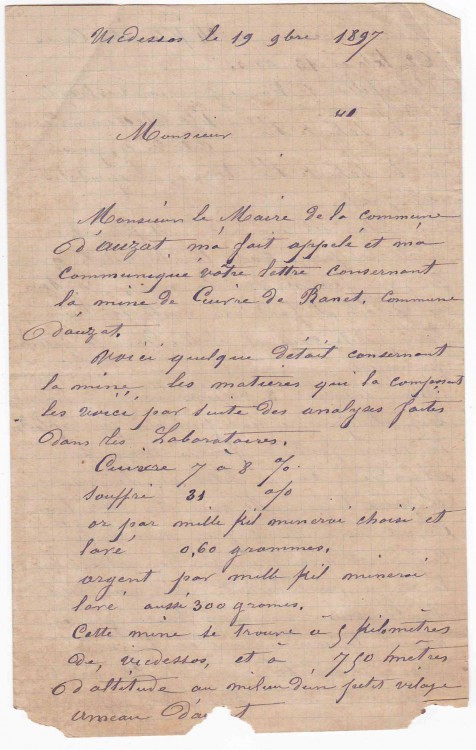 Vicdessos le 19 9bre 1897
Monsieur
Monsieur le Maire de la commune
d'auzat m'a fait appelé et m'a
communiqué vôtre lettre consernant
la mine de Cuivre de Ranet. Commune
D'auzat.
Voici quelque détail consernant
la mine les matieres qui la composent
les voicé par suite des analyses faites
dans les Laboratoires.
Cuivre 7 à 8 %
Souffre 31 %
or par mille kil minerai choisé et
lavé 0,60 grammes.
argent par mille kil minerai
lavé aussi 300 gromes.
Cette mine se trouve à 5 kilomètres
de, vicdessos, et à 750 mètres
d'altitude au milieu d'un petit vilage
ameau